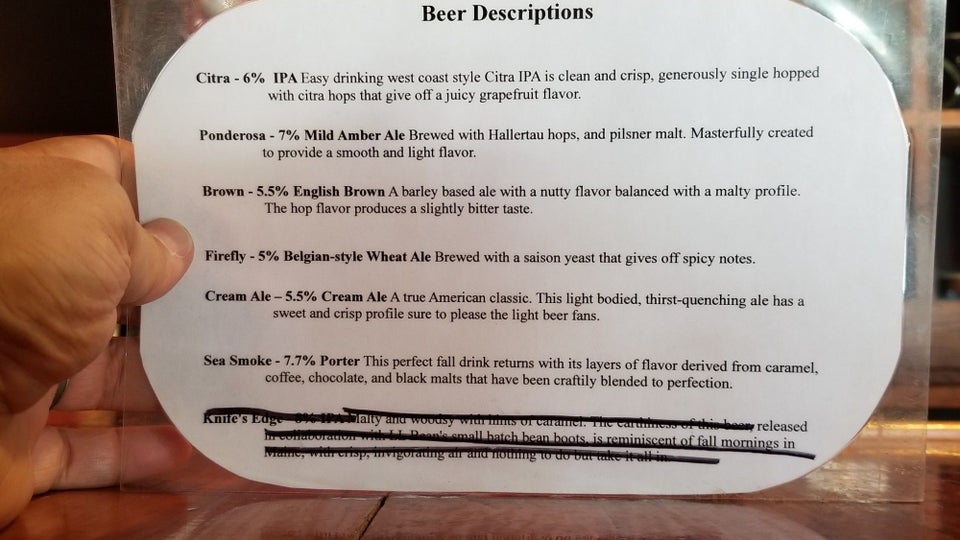 Beer Descriptions
Citra - 6% IPA Easy drinking west coast style Citra IPA is clean and crisp, generously single hopped
with citra hops that give off a juicy grapefruit flavor.
Ponderosa - 7% Mild Amber Ale Brewed with Hallertau hops, and pilsner malt. Masterfully created
to provide a smooth and light flavor.
Brown - 5.5% English Brown A barley based ale with a nutty flavor balanced with a malty profile.
The hop flavor produces a slightly bitter taste.
Firefly - 5% Belgian-style Wheat Ale Brewed with a saison yeast that gives off spicy notes.
Cream Ale – 5.5% Cream Ale A true American classic. This light bodied, thirst-quenching ale has a
sweet and crisp profile sure to please the light beer fans.
Sea Smoke - 7.7% Porter This perfect fall drink returns with its layers of flavor derived from caramel,
coffee, chocolate, and black malts that have been craftily blended to perfection.
Knife's Edge - 8% IPA Malty and woodsy with hints of caramel. The earthiness of this beer, released
in collaboration with LL Bean's small batch bean boots, is reminiscent of fall mornings in
Maine, with crisp, invigorating air and nothing to do but take it all in.